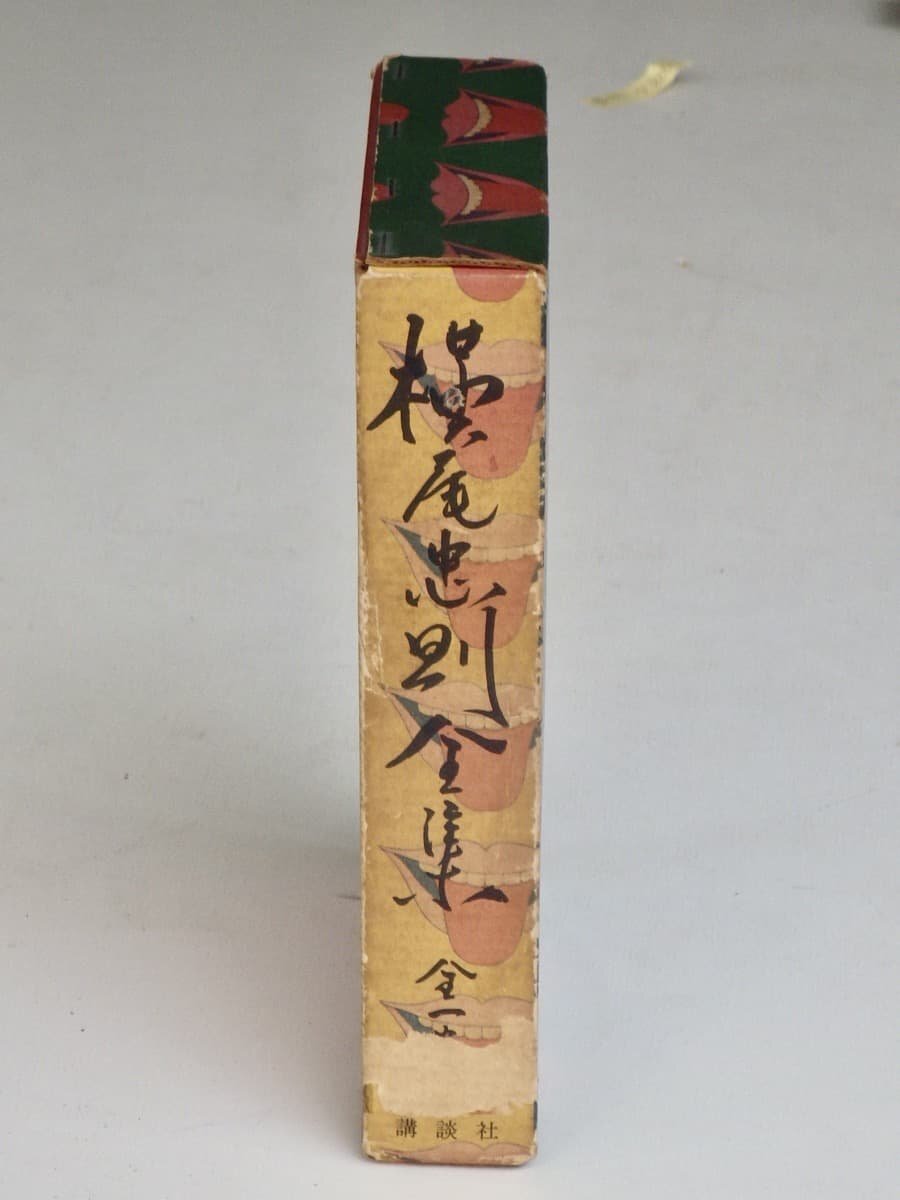 横尾忠則全集
全一
講談社